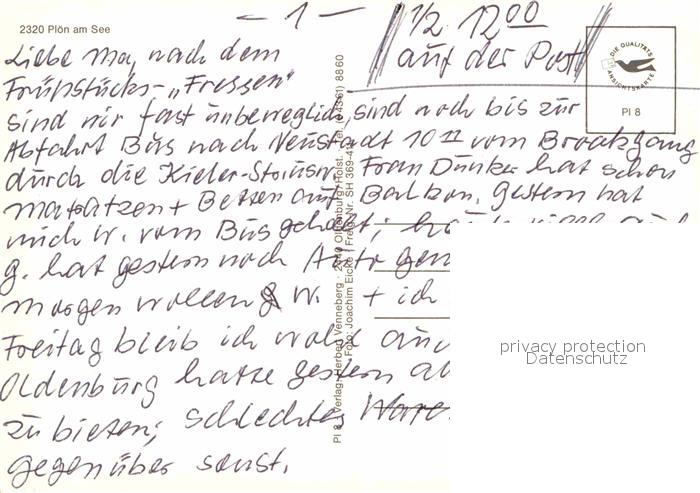 2320 Plön am See
- 1 -
1/2 12 00
auf der Post
DIE QUALITÄTS
ANSICHTSKARTE
Pl 8
Liebe Ma, nach dem
Frühstücks-„Fressen"
sind wir fast unbeweglich, sind noch bis zur
Abfahrt Bus nach Neustadt 10 vom
durch die Kieler- Frau Dunker hat schon
Matratzen + Betten auf Balkon. Gestern hat
mich W. vom Bus geholt;
g. hat gestern noch Auto
morgen wollen W. + ich
Freitag bleib ich wohl auch
Oldenburg hatte gestern
zu bieten; schlechte Ware
gegenüber sonst.
Pl 8 Verlag: Herbert Venneberg · 2440 Oldenburg/Holst. · Tel. (04361) 8860
Foto: Joachim Eicke / Freig.-Nr. SH 369-4
privacy protection
Datenschutz